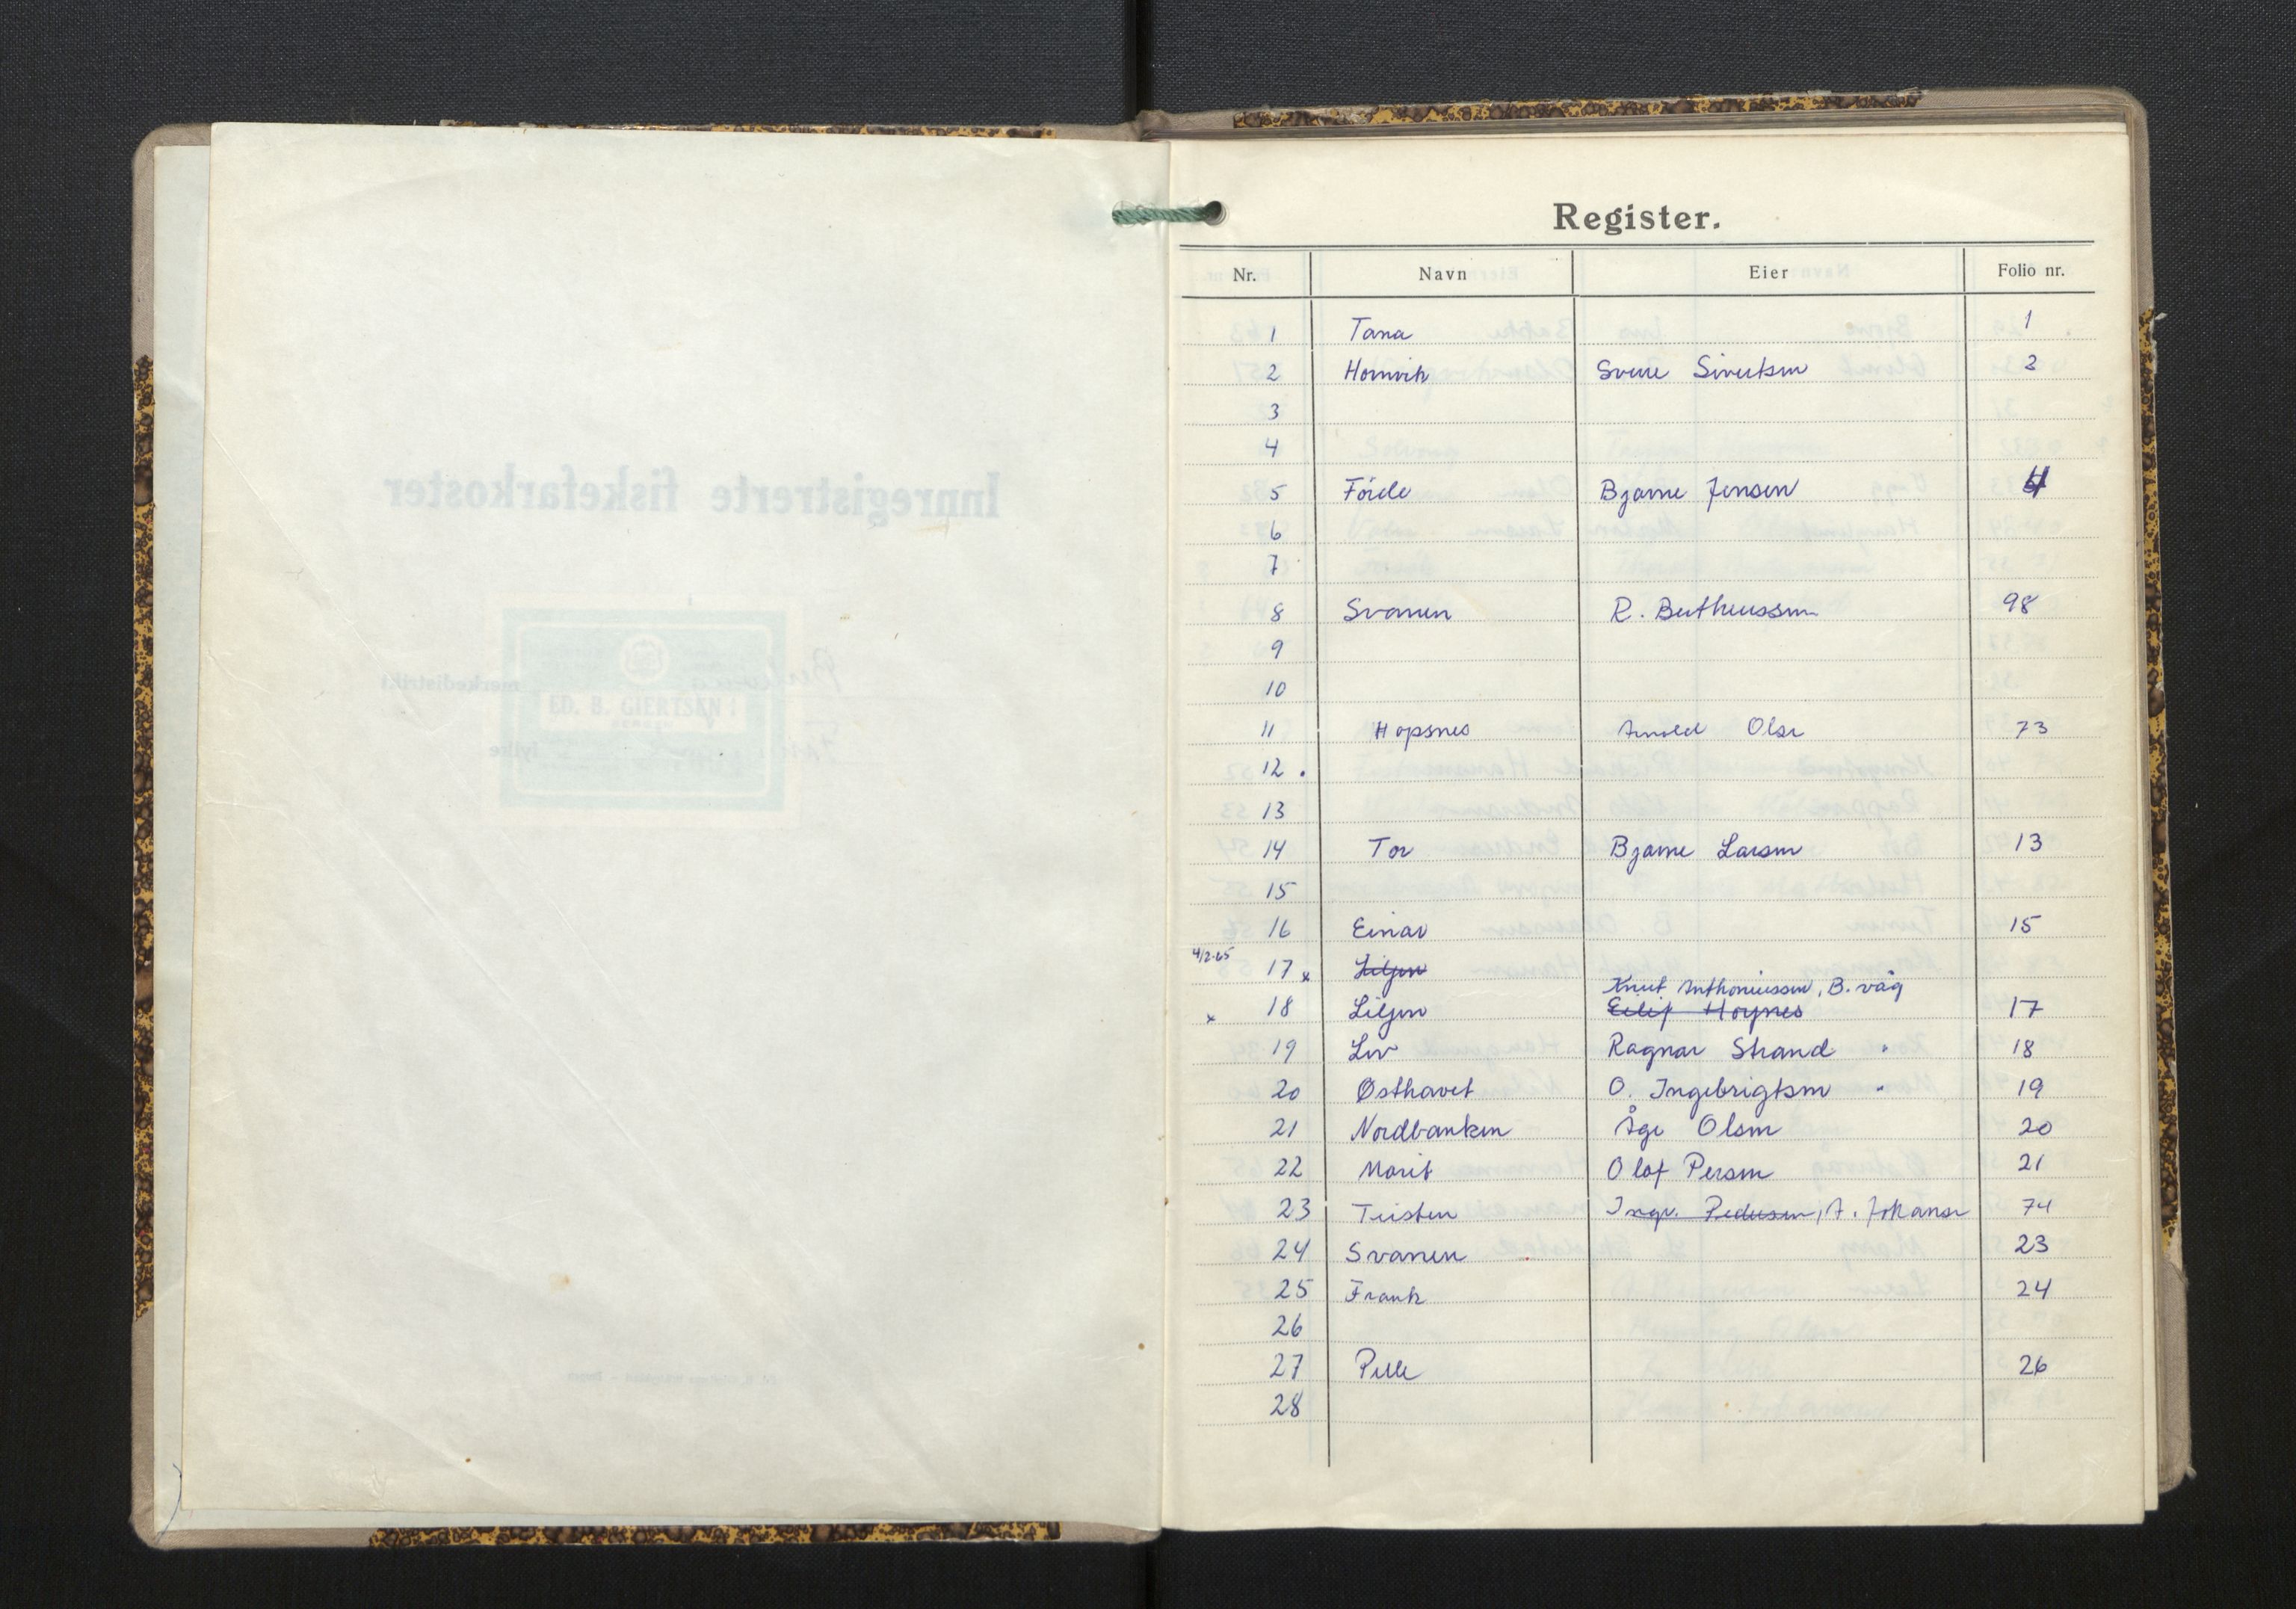 Innregistrerte fiskefarkoster
merkedistrikt
fylke
ED. B. GIERTSEN
BERGEN
Register.
Nr. Navn Eier Folio nr.
1 Tana 1
2 Hornvik Sverre Sivertsen 2
3
4
5 Förde Bjarne Jensen 4
6
7
8 Svanen R. Bertheussen 98
9
10
11 Hopsnes Arnold Olsen 73
12 .
13
14 Tor Bjarne Larsen 13
15
16 Einar 15
4/2-65
17 x Liljen
Knut Anthoniussen, B.våg
x 18 Liljen Eilif Høynes 17
19 Liv Ragnar Strand " 18
20 Østhavet O. Ingebrigtsen " 19
21 Nordbanken Åge Olsen 20
22 Marit Olaf Persen 21
23 Teisten Ingv. Pedersen, A. Johansen 74
24 Svanen 23
25 Frank 24
26
27 Pelle 26
28